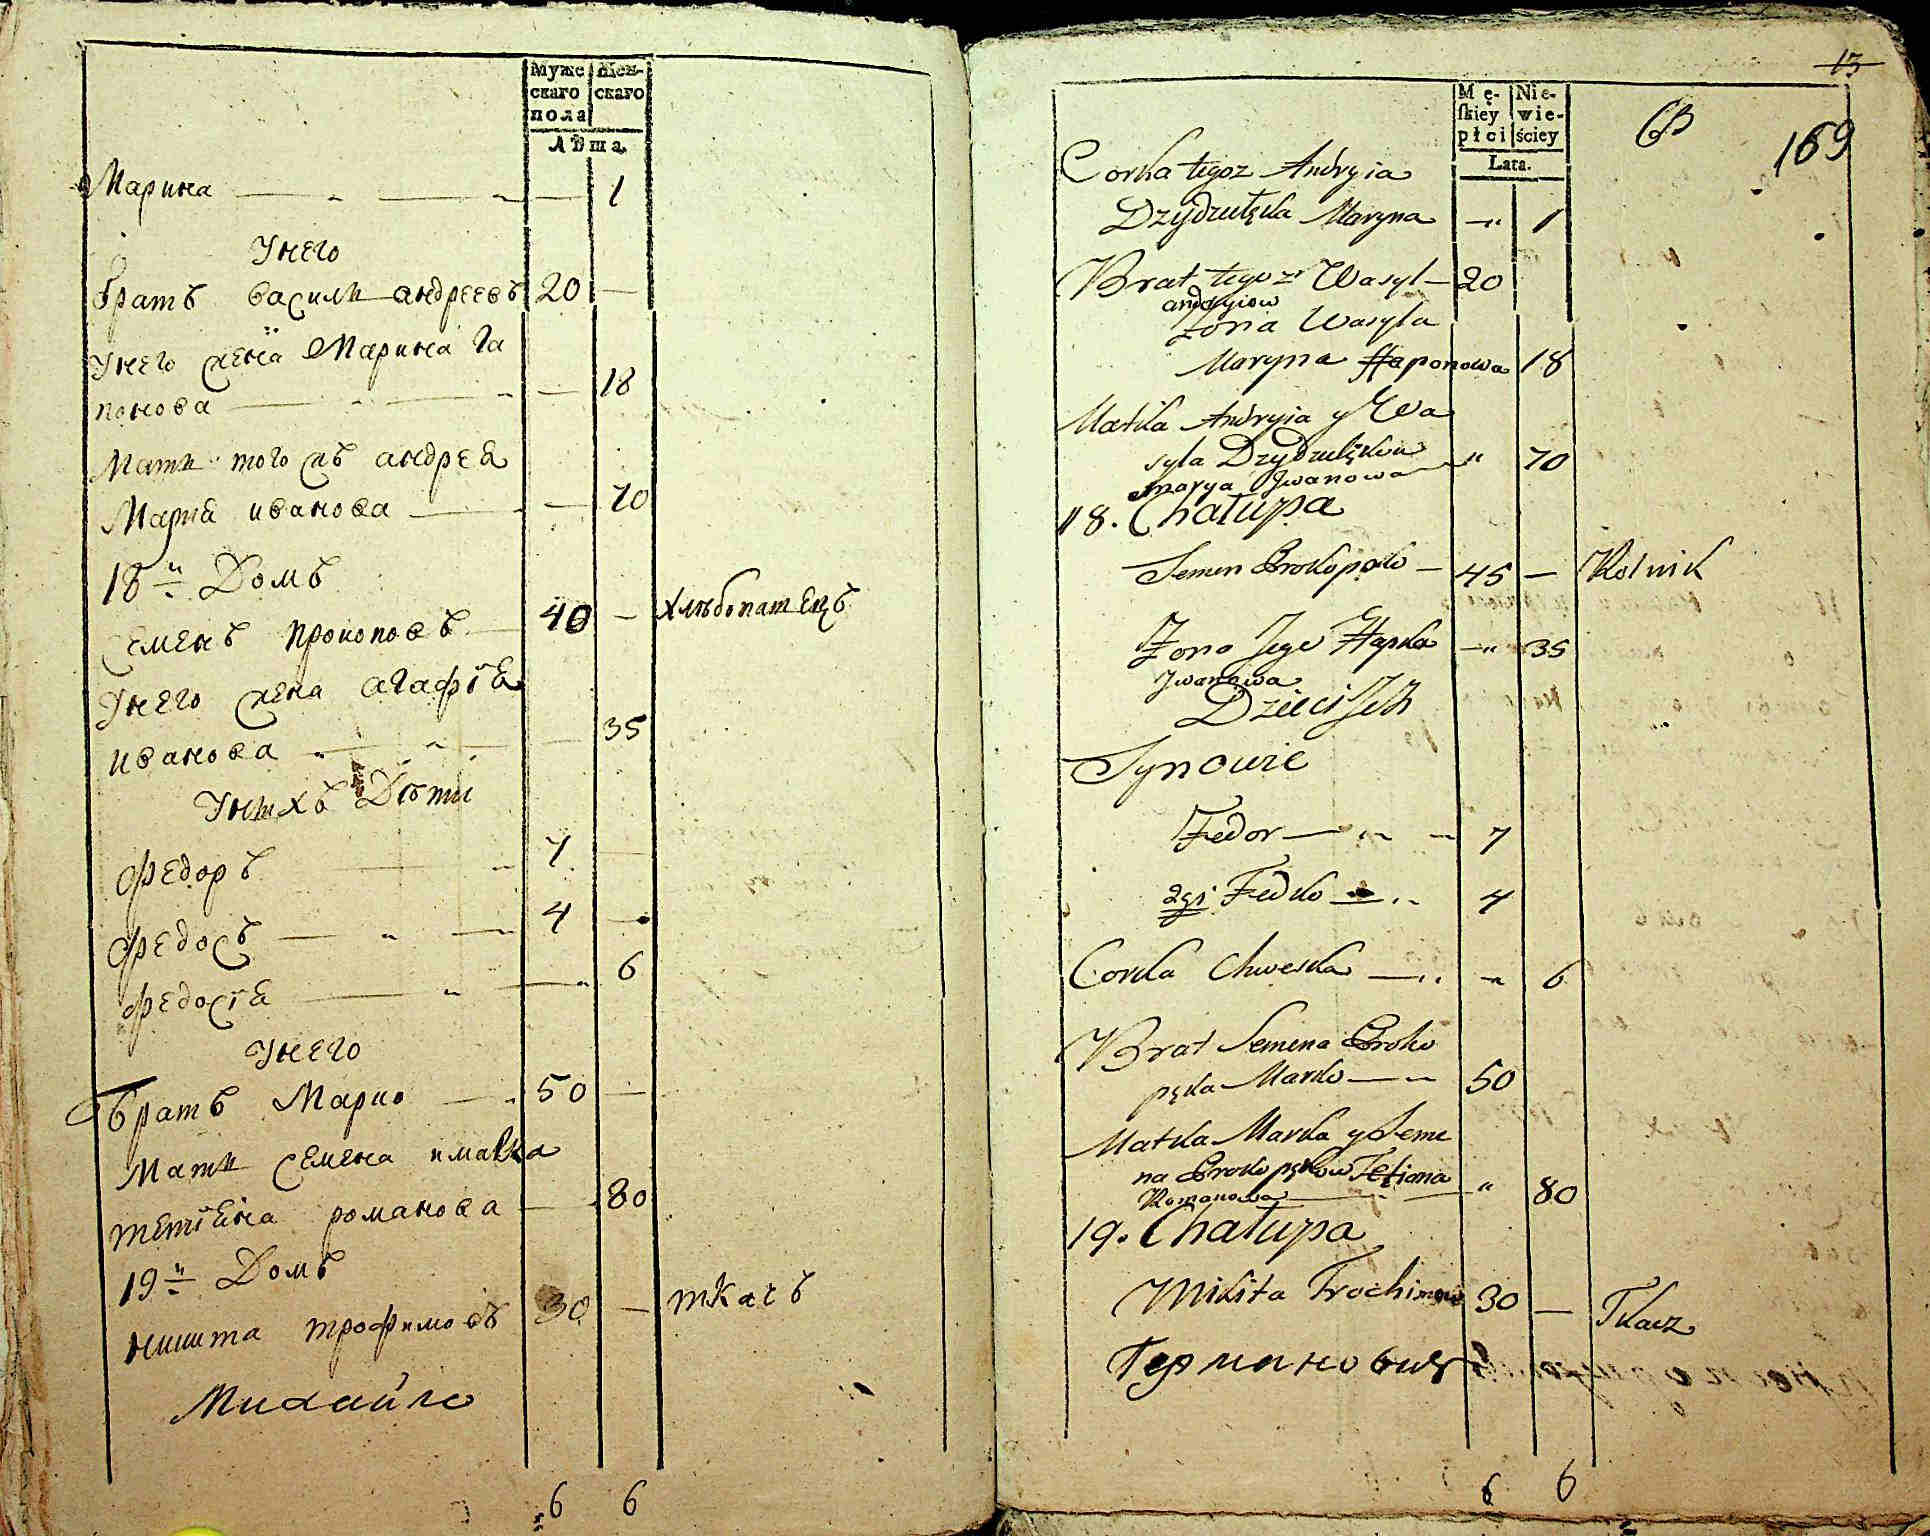 Муже
скаго
пола
Жен-
скаго
Лѣта.
Марина — „ — „ — 1
Унего
братъ василй андреевъ 20 —
Унего жена Марина Га
понова — „ — 18
Мати тогожъ андрея
Марія иванова — — 70
18й Домъ
Семенъ прокоповъ — 40 — хлѣбопашецъ
Унего жена агафія
иванова — „ — 35
Унихъ Дѣти
федоръ 7 —
федосъ — „ — 4 —
федосія — „ — „ 6
Унего
братъ Марко — „ 50 —
Мати Семена имарка
тетіяна романова — 80
19й Домъ
никита трофимовъ 30 — ткачъ
Михайло
6 6
13
169
Mę-
skiey
płci
Nie-
wie-
ściey
Lata.
Corka tegoz Andryia
Maryna — „ 1
Brat tegoz Wasyl — 20
andryiow
zona Wasyla
Maryna Haponowa 18
Matka Andryia y Wa
syla „ 70
marya Jwanowa
18. Chałupa
Semen Prokopow — 45 — Rolnik
Zona Jego Hapka — „ 35
Jwanowa
Dzieci Jch
Synowie
Fedor — „ — 7
2gi Fedko — „ 4
Corka Chweska — „ „ 6
Brat Semena Proko
pęka Marko — „ 50
Matka Marka y Seme
na Prokopękow Tetiana „ 80
Romanowa
19. Chałupa
Mikita Trochimow 30 — Tkacz
Германовичъ
6 6